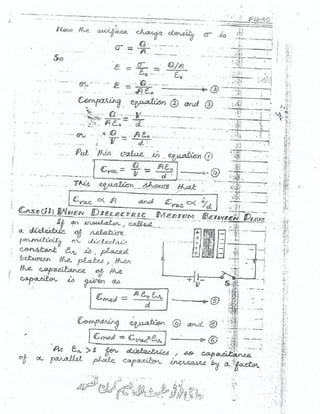 Now the surface charge density σ is
σ = Q/A
So
E = σ/ε₀ = Q/A / ε₀
or E = Q/Aε₀ → ③
Comparing equation ② and ③
Q/Aε₀ = V/d
or Q/V = Aε₀/d
Put this value in equation ①
Cvac = Q/V = Aε₀/d → ④
This equation shows that
Cvac ∝ A and Cvac ∝ 1/d
CASE(ii) WHEN DIELECTRIC MEDIUM BETWEEN
If an insulator, called
a dielectric of relative
permittivity or dielectric
constant εr is placed
between the plates, then
the capacitance of the
capacitor is
given as
Cmed = Aε₀εr/d → ⑤
Comparing equation ④ and ⑤
Cmed = Cvac×εr → ⑥
As εr > 1 for dielectrics, so capacitance
of a parallel plate capacitor increases by a factor